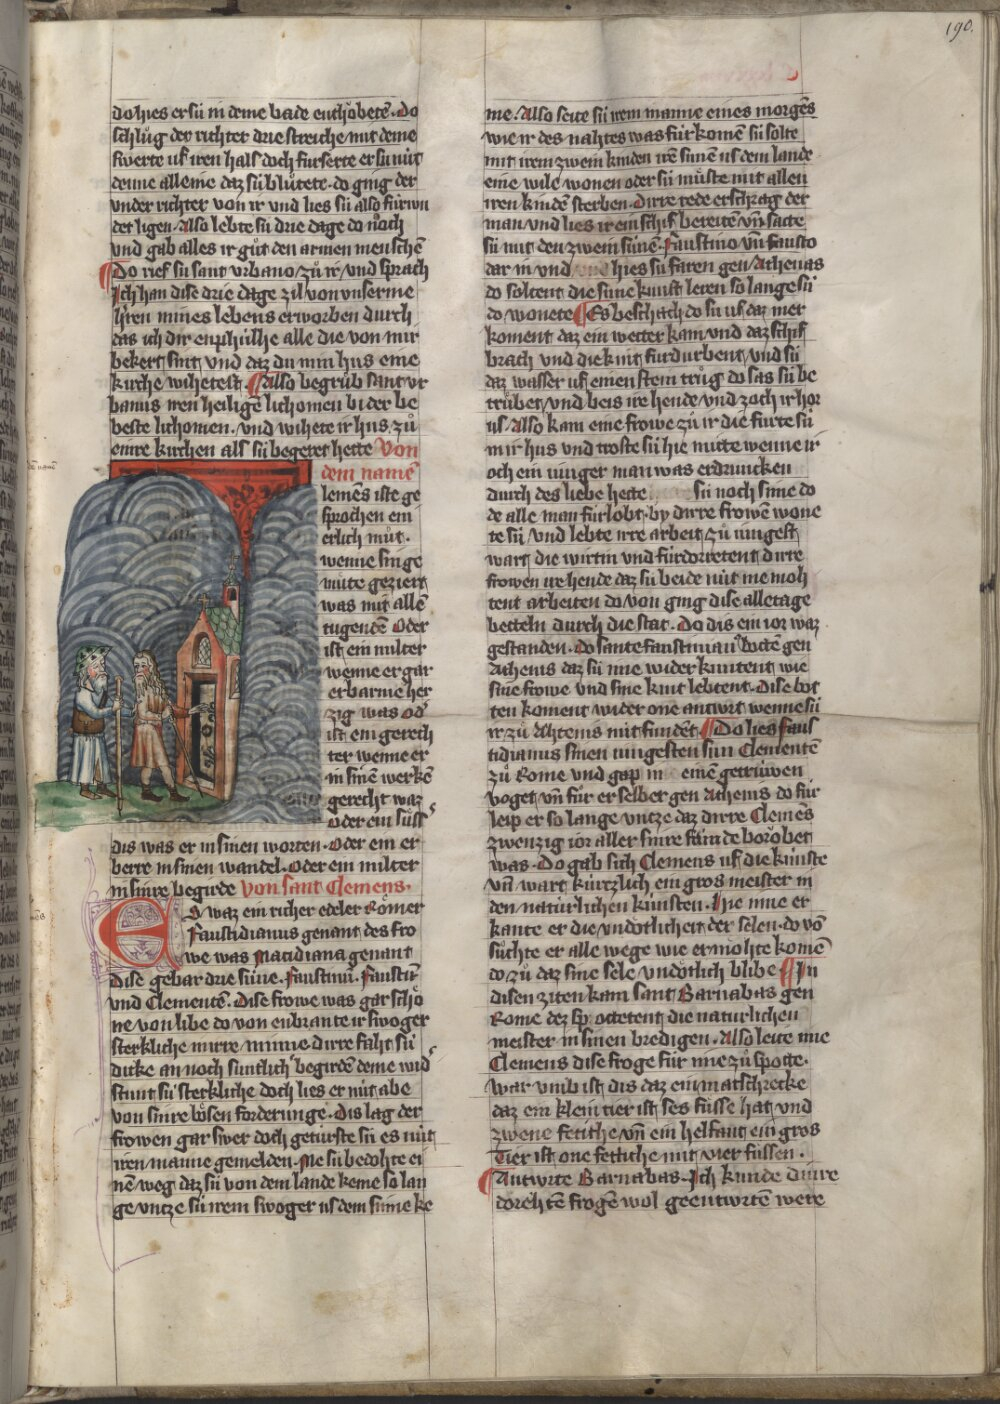 190.
do hies er sü in deme bade enthöbetē. Do
schlůg der richter drie streiche mit deme
swerte uf iren hals doch furserte er sü nüt
denne alleine daz sü blůtete. do ging der
vnder richter von ir vnd lies sü also fürwn
det ligen. Also lebte sü drie dage do noch
vnd gab alles ir gůt den armen menschē
Do rief sü sant vrbano zů ir vnd sprach
Ich han dise drie dage zil von vnserme
hren mines lebens erworben durch
das ich dir enphilhe alle die von mir
bekert sint vnd daz du min hus eine
kirche wihetest. Also begrůb sant vr
banus iren heiligē lichomen bi der be
beste lichomen. vnd wihete ir hus zů
einre kirchen als sü begeret hette Von
dem namē
lemēs ist ge
sprochen ein
erlich můt.
wenne sin ge
müte geziert
was mit allē
tugendē Oder
ist ein milter
wenne er gar
erbarmeher
zig was od'
ist ein gerech
ter wenne er
in sinē werkē
gerecht waz
oder ein süss'
dis was er in sinen worten. Oder ein er
bere in sinen wandel. Oder ein milter
in sinre begirde von sant Clemens.
Es waz ein richer edeler Römer
Faustidianus genant des fro
we was Macidiana genant
Dise gebar drie süne. Faustinū. Faustū
vnd Clementē. Dise frowe was gar schö
ne von libe do von enbrante ir swoger
sterkliche mit irre minne dirre faht sü
dicke an noch süntlich' begirdē deme wid'
stunt sü sterkliche doch lies er nüt abe
von sinre bösen forderunge. Dis lag der
frowen gar swer doch getürste sü es nüt
iren manne gemelden. Me sü bedohte ei
nē weg daz sü von dem lande keme so lan
ge vntze sü irem swoger us dem sinne ke
me. Also seite sü irem manne eines morgēs
wie ir des nahtes was für komē sü solte
mit irem zwein kinden irē sünen us dem lande
eine wile wonen oder sü můste mit allen
iren kindē sterben. Dirre rede erschrag der
man vnd lies ir ein schif bereitē vn̄ satte
sü mit den zwein sünē. Faustino vn̄ fausto
dar in vnd hies sü faren gen Athenas
do soltent die süne kunst leren so lange sü
do wonete Es beschach do sü uf daz mer
koment daz ein wetter kam vnd daz schif
brach vnd die kint fürdurbent, vnd sü
daz wasser uf einen stein trůg do sas sü be
trübet, vnd beis ire hende vnd zoch ir hor
us. Also kam eine frowe zů ir die fürte sü
in ir hus vnd troste sü hie mitte wenne ir
och ein iunger man was erdruncken
durch des liebe hette sü noch sime do
de alle man fürlobt. by dirre frowē wone
te sü vnd lebte irre arbeit, zů iungest
wart die wirtin vnd fürdorretent dirre
frowen ire hende daz sü beide nüt me moh
tent arbeiten do von ging dise alle tage
betteln durch die stat. Do dis ein ior waz
gestanden. do sante faustinian' botē gen
Athenis daz sü nie wider kantent wie
sine frowe vnd sine kint lebtent. Dise bot
ten koment wider one antwrt wenne sü
ir zů Athenis nüt fundēt Do lies faus
tidianus sinen iungesten sun Clementē
zů Rome vnd gap im einē getrüwen
voget, vn̄ fůr er selber gen Athenis do für
leip er so lange vntze daz dirre Clemēs
zwenzig ior aller sinre fründe borobet
was. Do gab sich Clemens uf die künste
vn̄ wart kürtzlich ein gros meister in
den natürlichen künsten. Hie inne er
kante er die vndotlicheit der selen. do vō
sůchte er alle wege wie er mohte komē
do zů daz sine sele vndötlich blibe In
disen ziten kam sant Barnabas gen
Rome dez sp octetent die natürlichen
meister in sinen bredigen. Also leite ime
Clemens dise froge für ime zů spotte.
war vmb ist dis daz ein matschrecke
daz ein klein tier ist ses füsse hat vnd
zwene fettiche vn̄ ein helfant ein gros
Tier ist one fettiche mit vier füssen.
Antwrte Barnabas. Ich kunde diure
dorehtē frogē wol geentwrtē were